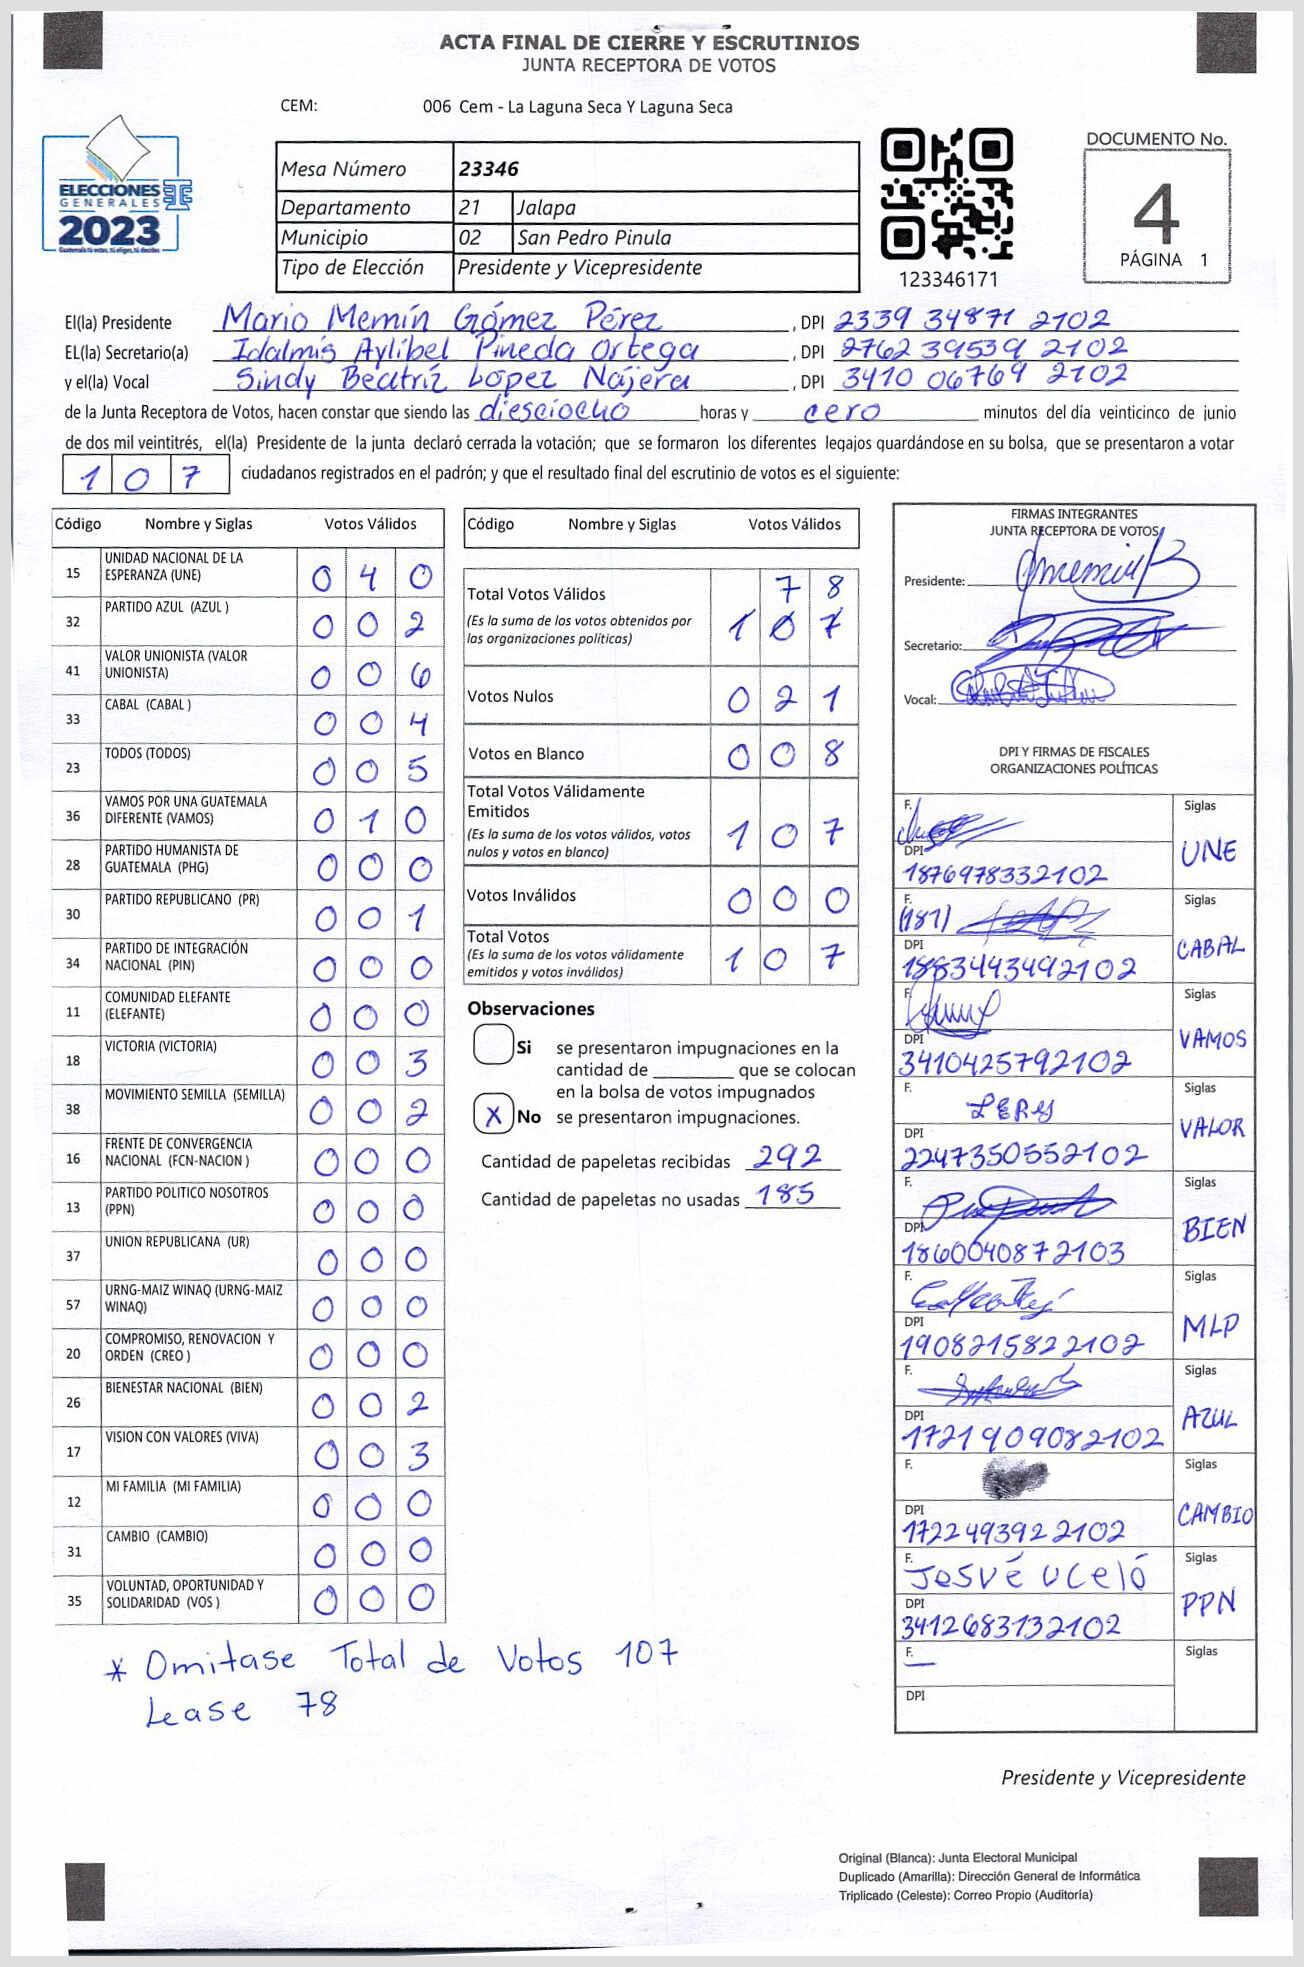 ACTA FINAL DE CIERRE Y ESCRUTINIOS
JUNTA RECEPTORA DE VOTOS
CEM: 006 Cem - La Laguna Seca Y Laguna Seca
ELECCIONES
GENERALES
2023
Mesa Número 23346
Departamento 21 Jalapa
Municipio 02 San Pedro Pinula
Tipo de Elección Presidente y Vicepresidente
123346171
DOCUMENTO No.
4
PÁGINA 1
El(la) Presidente Mario Memín Gómez Pérez, DPI 2339 34871 2102
EL(la) Secretario(a) Idalmis Aylibel Pineda Ortega, DPI 2762 39539 2102
y el(la) Vocal Sindy Beatríz López Nájera, DPI 3410 06769 2102
de la Junta Receptora de Votos, hacen constar que siendo las diesciocho horas y cero minutos del día veinticinco de junio
de dos mil veintitrés, el(la) Presidente de la junta declaró cerrada la votación; que se formaron los diferentes legajos guardándose en su bolsa, que se presentaron a votar
107 ciudadanos registrados en el padrón; y que el resultado final del escrutinio de votos es el siguiente:
Código Nombre y Siglas Votos Válidos
15 UNIDAD NACIONAL DE LA ESPERANZA (UNE) 0 4 0
32 PARTIDO AZUL (AZUL ) 0 0 2
41 VALOR UNIONISTA (VALOR UNIONISTA) 0 0 6
33 CABAL (CABAL ) 0 0 4
23 TODOS (TODOS) 0 0 5
36 VAMOS POR UNA GUATEMALA DIFERENTE (VAMOS) 0 1 0
28 PARTIDO HUMANISTA DE GUATEMALA (PHG) 0 0 0
30 PARTIDO REPUBLICANO (PR) 0 0 1
34 PARTIDO DE INTEGRACIÓN NACIONAL (PIN) 0 0 0
11 COMUNIDAD ELEFANTE (ELEFANTE) 0 0 0
18 VICTORIA (VICTORIA) 0 0 3
38 MOVIMIENTO SEMILLA (SEMILLA) 0 0 2
16 FRENTE DE CONVERGENCIA NACIONAL (FCN-NACION ) 0 0 0
13 PARTIDO POLITICO NOSOTROS (PPN) 0 0 0
37 UNION REPUBLICANA (UR) 0 0 0
57 URNG-MAIZ WINAQ (URNG-MAIZ WINAQ) 0 0 0
20 COMPROMISO, RENOVACION Y ORDEN (CREO ) 0 0 0
26 BIENESTAR NACIONAL (BIEN) 0 0 2
17 VISION CON VALORES (VIVA) 0 0 3
12 MI FAMILIA (MI FAMILIA) 0 0 0
31 CAMBIO (CAMBIO) 0 0 0
35 VOLUNTAD, OPORTUNIDAD Y SOLIDARIDAD (VOS ) 0 0 0
* Omitase Total de Votos 107
Lease 78
Código Nombre y Siglas Votos Válidos
Total Votos Válidos 7 8
(Es la suma de los votos obtenidos por las organizaciones políticas) 1 0 7
Votos Nulos 0 2 1
Votos en Blanco 0 0 8
Total Votos Válidamente Emitidos
(Es la suma de los votos válidos, votos nulos y votos en blanco) 1 0 7
Votos Inválidos 0 0 0
Total Votos
(Es la suma de los votos válidamente emitidos y votos inválidos) 1 0 7
Observaciones
Si se presentaron impugnaciones en la
cantidad de ________ que se colocan
en la bolsa de votos impugnados
X No se presentaron impugnaciones.
Cantidad de papeletas recibidas 292
Cantidad de papeletas no usadas 185
FIRMAS INTEGRANTES
JUNTA RECEPTORA DE VOTOS
Presidente:
Secretario:
Vocal:
DPI Y FIRMAS DE FISCALES
ORGANIZACIONES POLÍTICAS
F. Siglas UNE
DPI 1876978332102
F. (181) Siglas CABAL
DPI 1883449349 2102
F. Siglas VAMOS
DPI 3410425792102
F. Siglas VALOR
DPI 2247350552102
F. Siglas BIEN
DPI 1860040872103
F. Siglas MLP
DPI 1908215822102
F. Siglas AZUL
DPI 1721909082102
F. Siglas CAMBIO
DPI 1722493922102
F. Josué Uceló Siglas PPN
DPI 3412683132102
F. Siglas
DPI
Presidente y Vicepresidente
Original (Blanca): Junta Electoral Municipal
Duplicado (Amarilla): Dirección General de Informática
Triplicado (Celeste): Correo Propio (Auditoría)